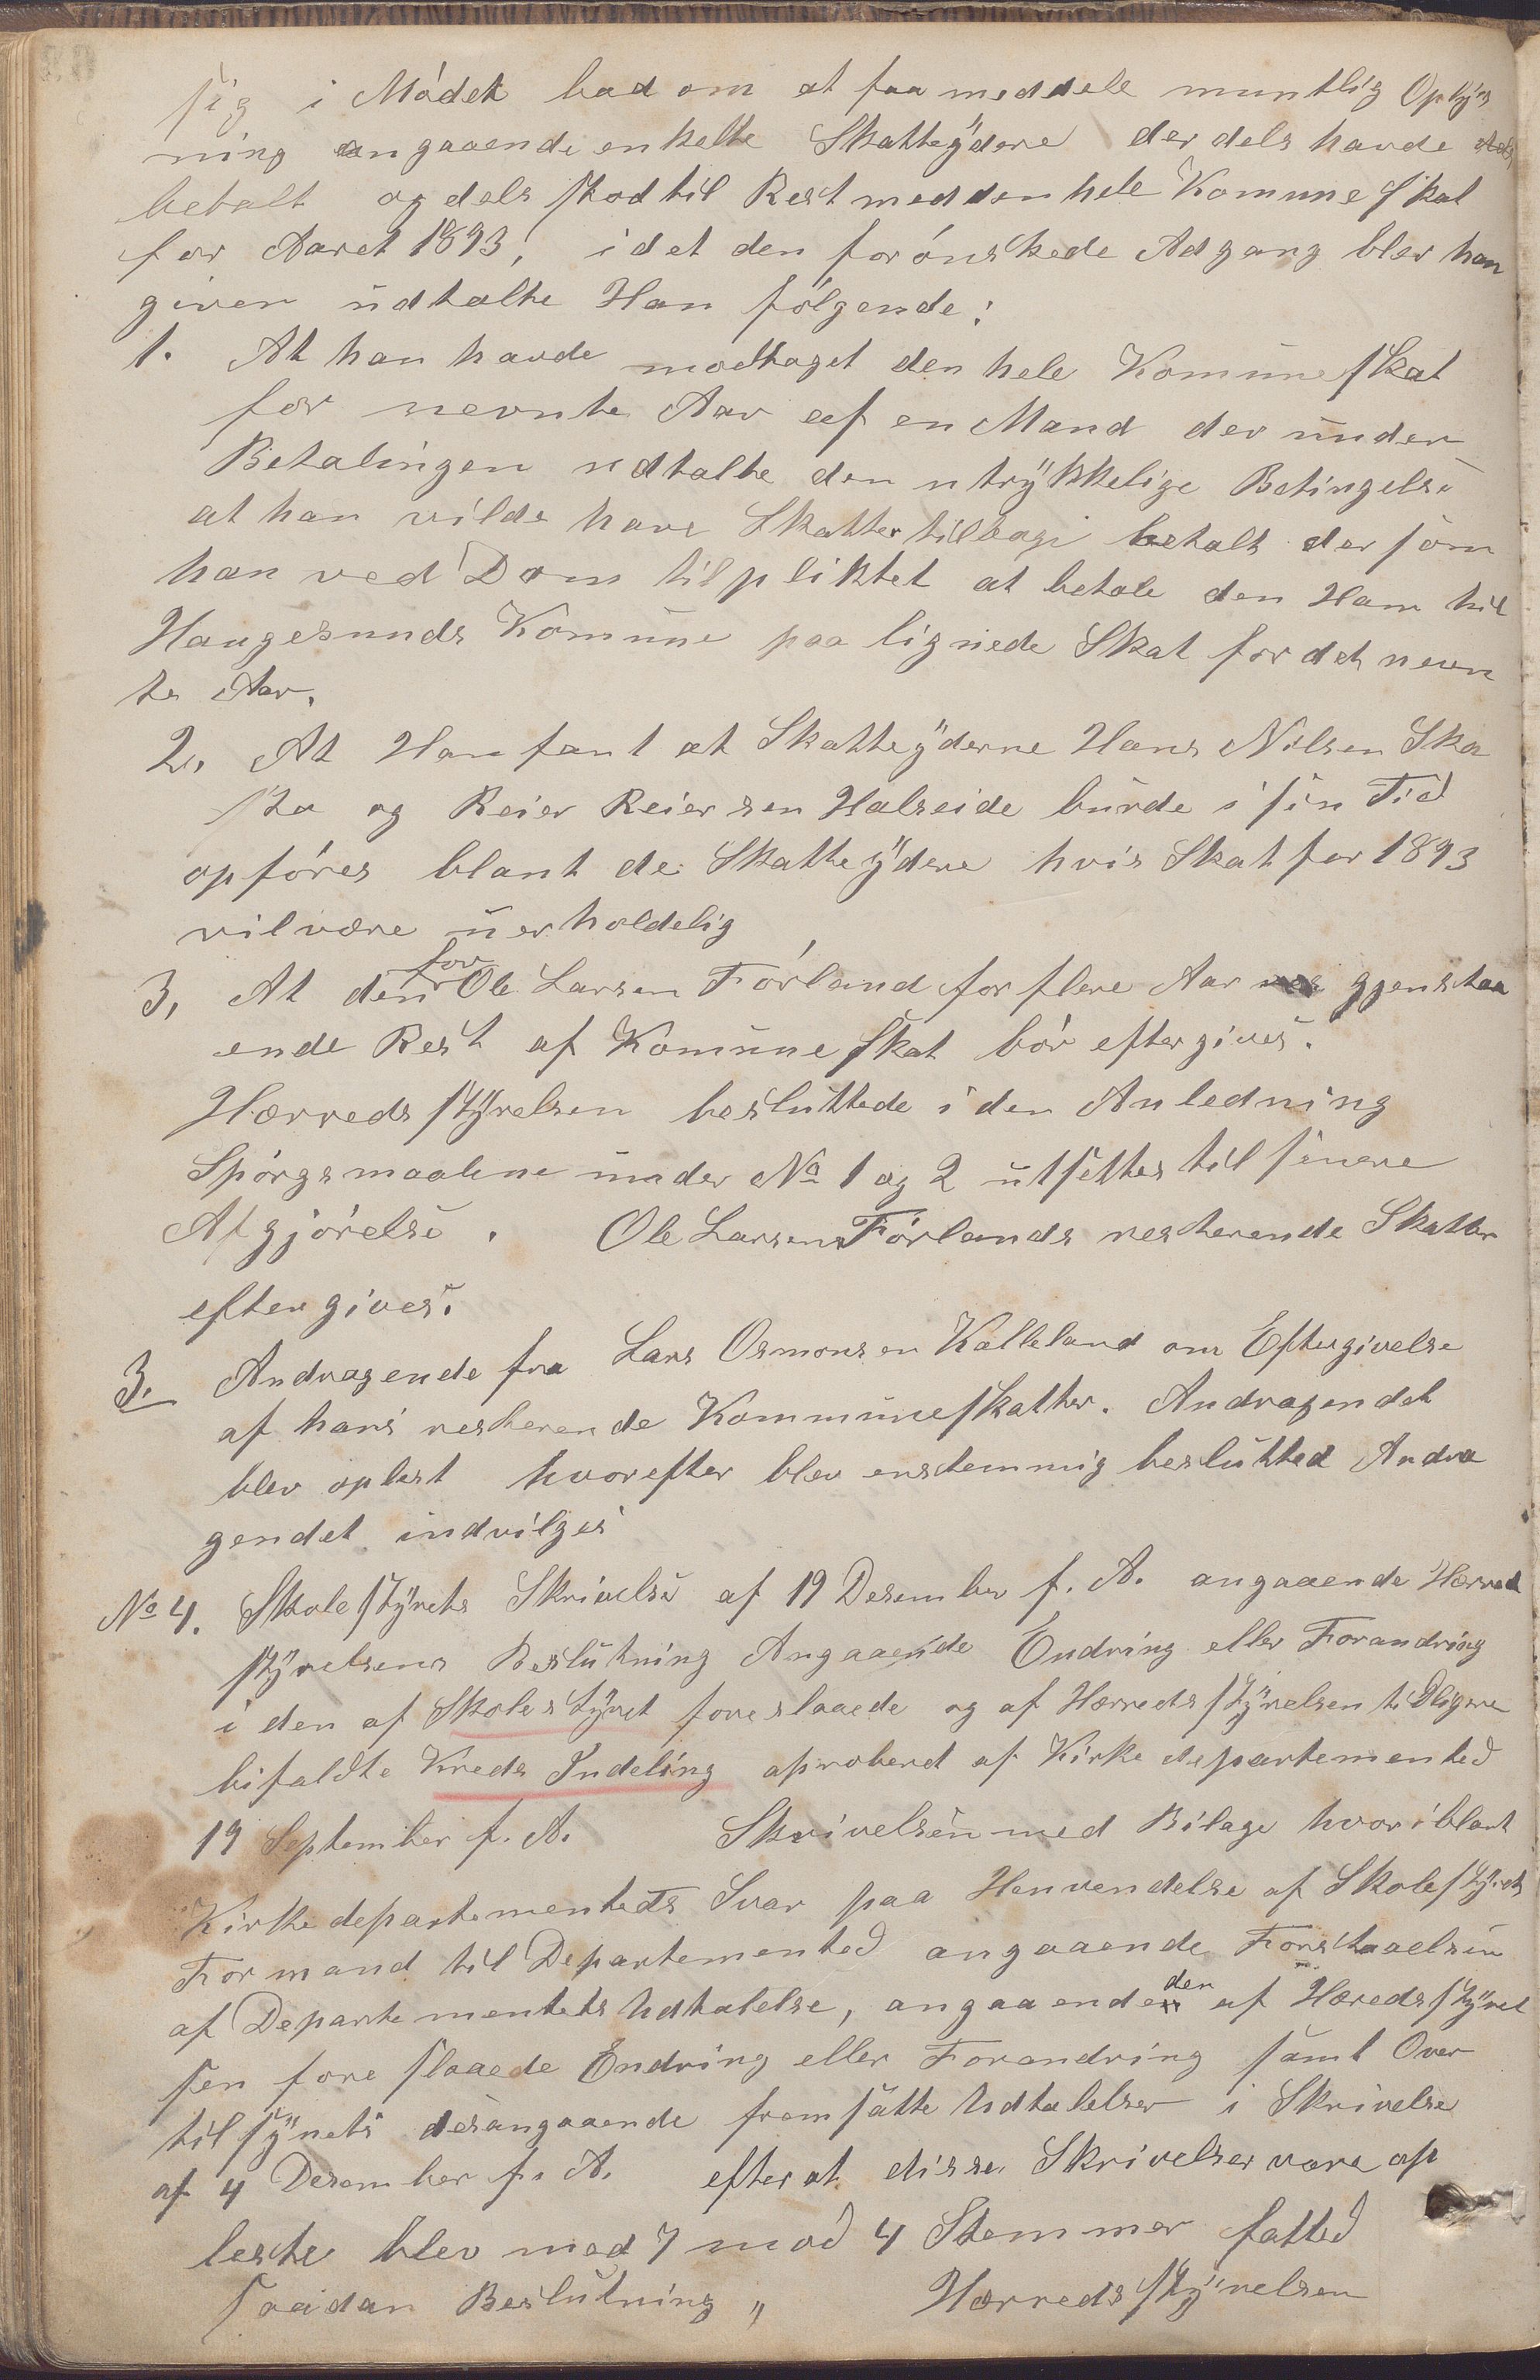 sig i Mødet bad om at faa meddele muntlig Oplys
ning angaaende enkelte Skatteÿdere der dels havde
betalt og dels stod til Rest med den hele Komune skat
for Aaret 1893, idet den forønskede Adgang blev han
given udtalte Han følgende:
1. At han havde modtaget den hele Komuneskat
for nevnte Aar af en Mand der under
Betalingen udtalte den utrÿkkelige Betingelse
at han vilde have Skatten tilbage betalt dersom
han ved Dom tilpliktet at betale den Ham til
Haugesunds Komune paa lignede Skat for det nevn
te Aar.
2. At Han fant at Skatteÿderne Hans Nilsen Ska
ka og Reier Reiersen Halseide burde i sin Tid
opføres blant de Skatteÿdere hvis Skat for 1893
vil være uerholdelig
3, At den for Ole Larsen Førland for flere Aar gjenstaa
ende Rest af Komuneskat bør eftergives.
Hærredsstÿrelsen besluttede i den Anledning
Spørgsmaalene under No 1 og 2 utsettes til senere
Afgjørelse. Ole Larsens Førlands resterende Skatter
eftergives.
3. Andragende fra Lars Osmonsen Kalleland om Eftergivelse
af hans resterende Kommuneskatter. Andragendet
blev oplest hvorefter blev enstemmig beslutted Andra
gendet indvilges
No 4. Skolestÿrets Skrivelse af 19 Desember f. A. angaaende Herred
stÿrelsens Beslutning Angaaende Endring eller Forandring
i den af Skolestÿret foreslaaede og af Hærredsstÿrelsen tidligere
bifaldte Kreds Indeling aproberet af Kirkedepartemented
19 September f. A. Skrivelsen med Bilage hvoriblant
Kirkedepartementets Svar paa Henvendelse af Skolestÿrets
Formand til Departemented angaaende Forstaaelsen
af Departementets Udtalelse, angaaende den af Hæredsstÿrel
sen foreslaaede Endring eller Forandring samt Over
tilsÿnets desangaaende fremsatte Udtalelser i Skrivelse
af 4 Desember f. A. efter at disse Skrivelser vare op
leste blev med 7 mod 4 Stemmer fatted
saadan Beslutning „ Hærredsstÿrelsen